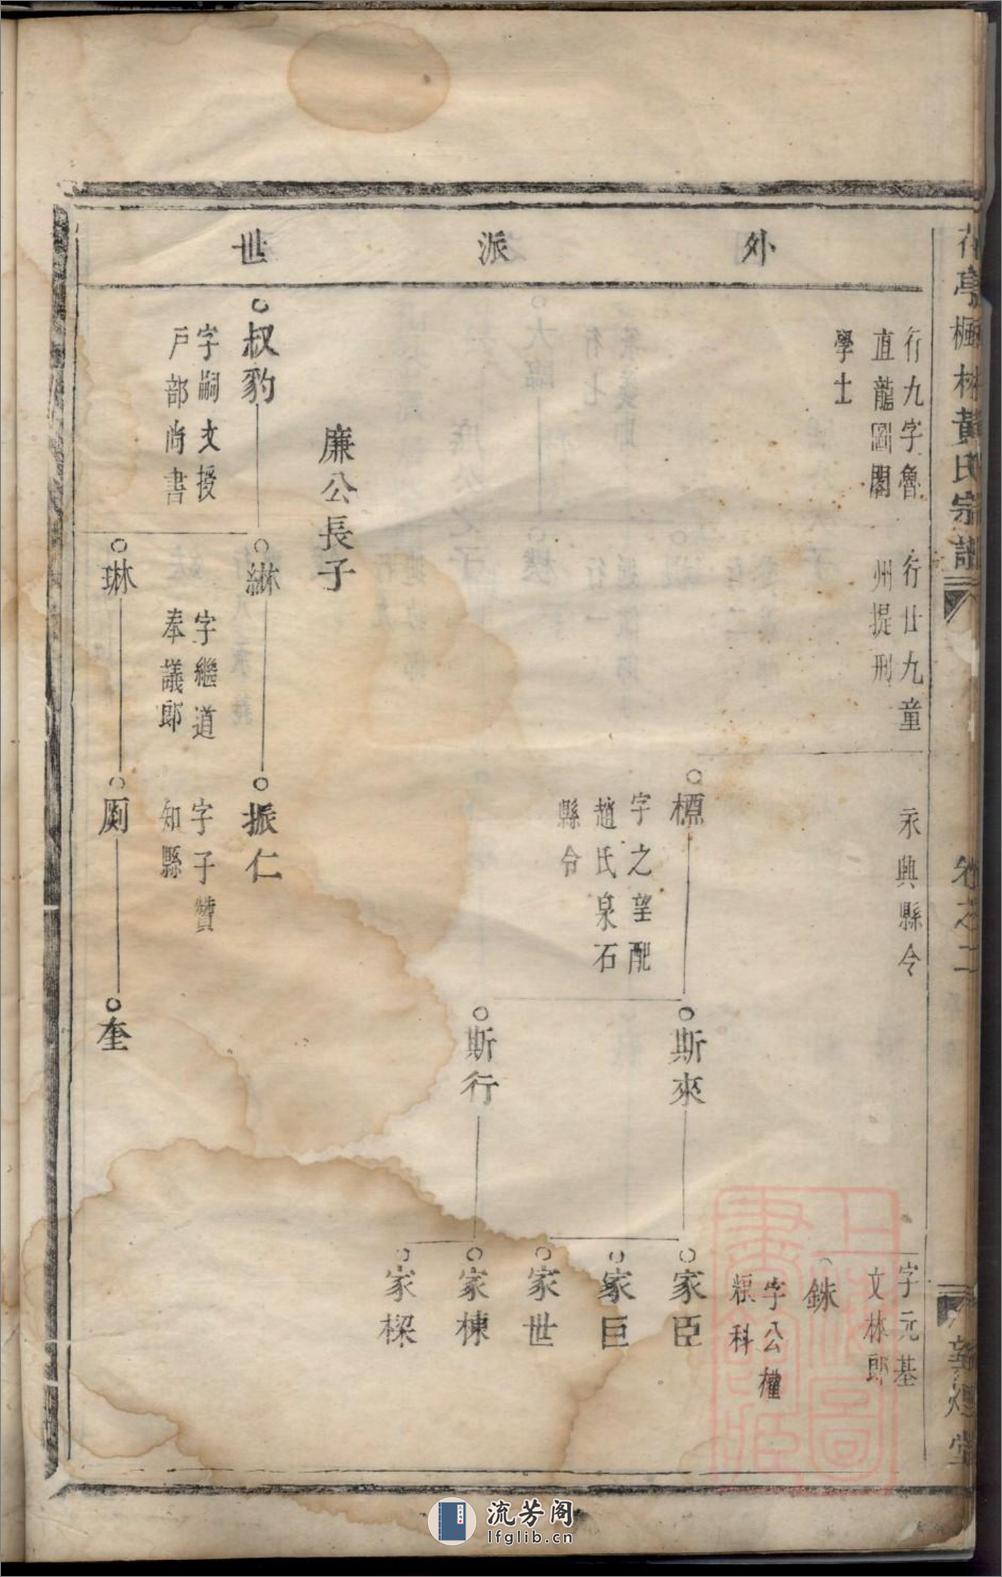 外派世
亭楓林黃氏宗譜
卷之二
敦煌堂
行九字魯
直龍圖閣
學士
行廿九童
州提刑
永興縣令
字元基
文林郎
銖
字公權
標
字之望配
趙氏泉石
縣令
斯來
斯行
家臣
家巨
家世
家棟
家樑
廉公長子
叔豹
字嗣文授
戶部尚書
綝
字繼道
奉議郎
振仁
字子贊
知縣
琳
厕
奎
流芳阁
lfglib.cn